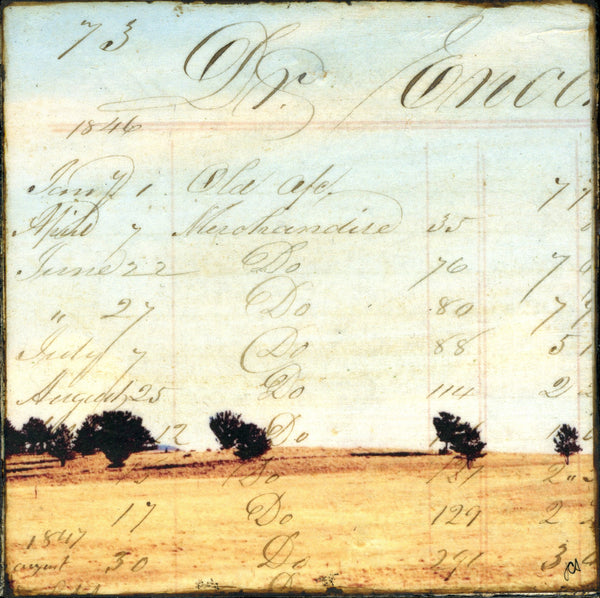 73 Dr. Enoc
1846
Jany 1 Old a/c 7
April 7 Merchandise 35
June 22 Do 76 7
" 27 Do 80 7
July 7 Do 88 5
August 25 Do 114 2
12 Do
Do 127 2
17 Do 129 2
1847
august 30 Do 291 3
Do